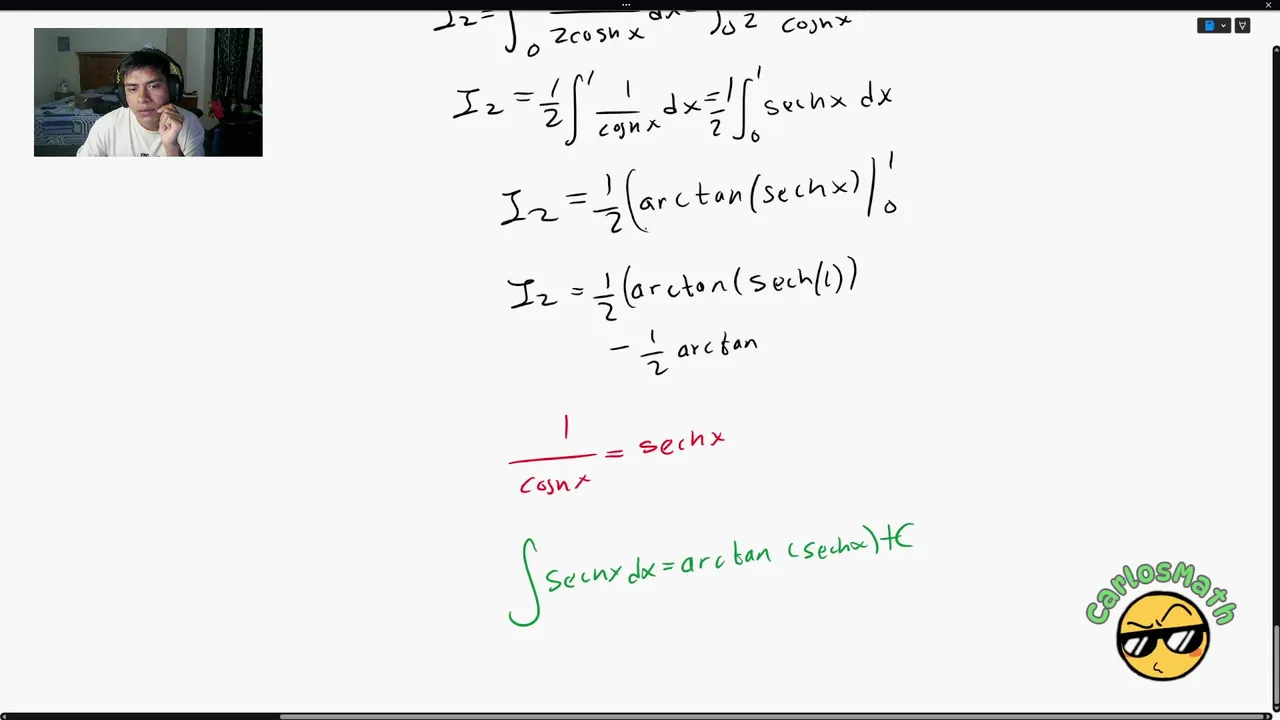 I₂ = ∫₀ 1/(2coshx) dx = ∫₀ 1/2 1/coshx
I₂ = 1/2 ∫¹ 1/coshx dx = 1/2 ∫₀¹ sechx dx
I₂ = 1/2 (arctan(sechx)|₀¹
I₂ = 1/2 (arctan(sech(1))
- 1/2 arctan
1/coshx = sechx
∫ sechx dx = arctan (sechx) + C
CarlosMath